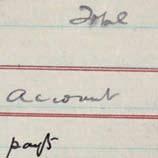 Total
Account
pay5